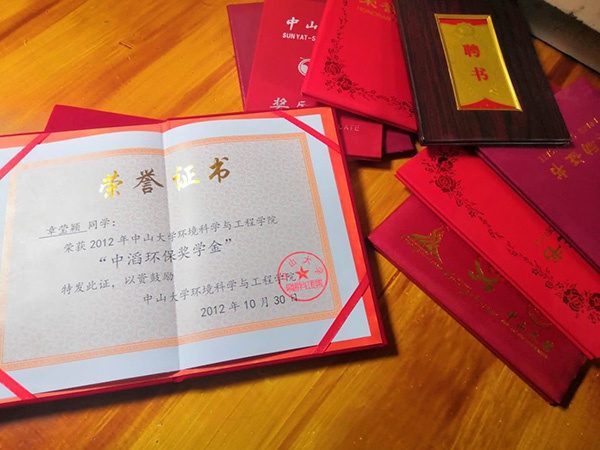 荣誉证书
章莹颖 同学：
荣获2012年中山大学环境科学与工程学院
“中滔环保奖学金”
特发此证，以资鼓励
中山大学环境科学与工程学院
2012年10月30日
中山
SUNYAT-S
奖
荣誉
聘书
证书
中山大学